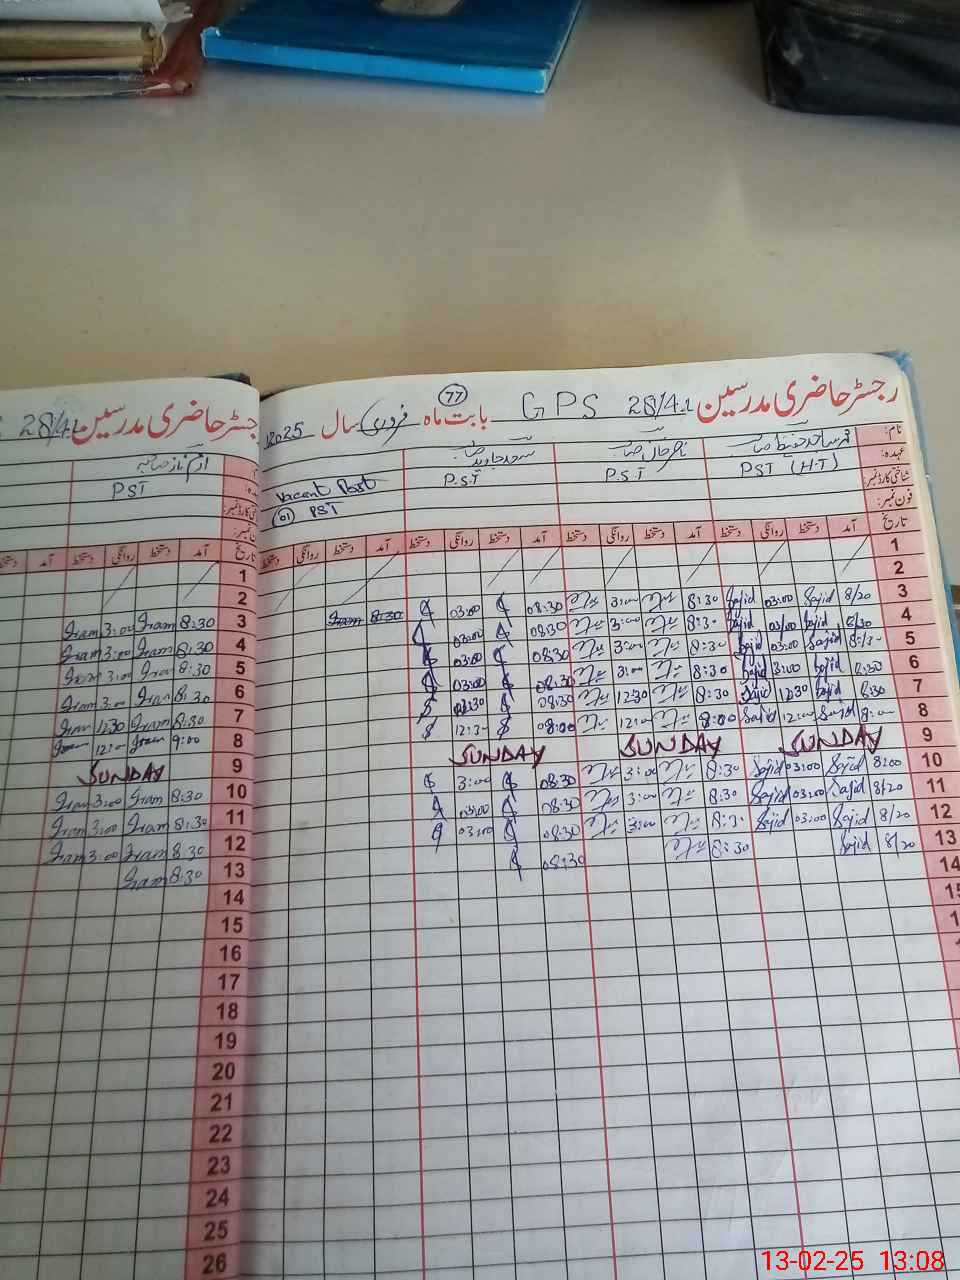 رجسٹر حاضری مدرسین GPS 28/4.L بابت ماہ فروری سال 2025
77
نام:
ناصر خان صاحب
عہدہ: PST (H.T) P.S.T P.S.T Vacant Post
شناختی کارڈ نمبر: (01) PST
فون نمبر:
تاریخ آمد دستخط روانگی دستخط آمد دستخط روانگی دستخط آمد دستخط روانگی دستخط آمد دستخط روانگی دستخط
1
2
3 8/20 Sajid 03:00 Sajid 8:30 3:00 08:30 03:00 8:30 Iram
4 8/30 Sajid 03:00 Sajid 8:30 3:00 08:30 03:00
5 Sajid 03:00 Sajid 8:30 3:00 08:30 03:00
6 8:30 Sajid 3:00 Sajid 8:30 3:00 08:30 03:00
7 8:30 Sajid 12:30 Sajid 8:30 12:30 08:30
8 8:00 Sajid 12:00 Sajid 8:00 12:00 08:00 12:30
9 SUNDAY SUNDAY SUNDAY
10 8:00 Sajid 03:00 Sajid 8:30 3:00 08:30 3:00
11 8/20 Sajid 03:00 Sajid 8:30 3:00 08:30 03:00
12 8/20 Sajid 03:00 Sajid 8:30 3:00 08:30 03:00
13 8/20 Sajid 8:30 08:30
14
15
جسٹر حاضری مدرسین 28/4.L
ارم ناز صاحبہ
PST
تاریخ آمد دستخط روانگی دستخط آمد دستخط
1
2
3 8:30 Iram 3:00 Iram
4 8:30 Iram 3:00 Iram
5 8:30 Iram 3:00 Iram
6 8:30 Iram 3:00 Iram
7 8:30 Iram 12:30 Iram
8 9:00 Iram 12:00 Iram
9 SUNDAY
10 8:30 Iram 3:00 Iram
11 8:30 Iram 3:00 Iram
12 8:30 Iram 3:00 Iram
13 8:30 Iram
14
15
16
17
18
19
20
21
22
23
24
25
26
13-02-25 13:08